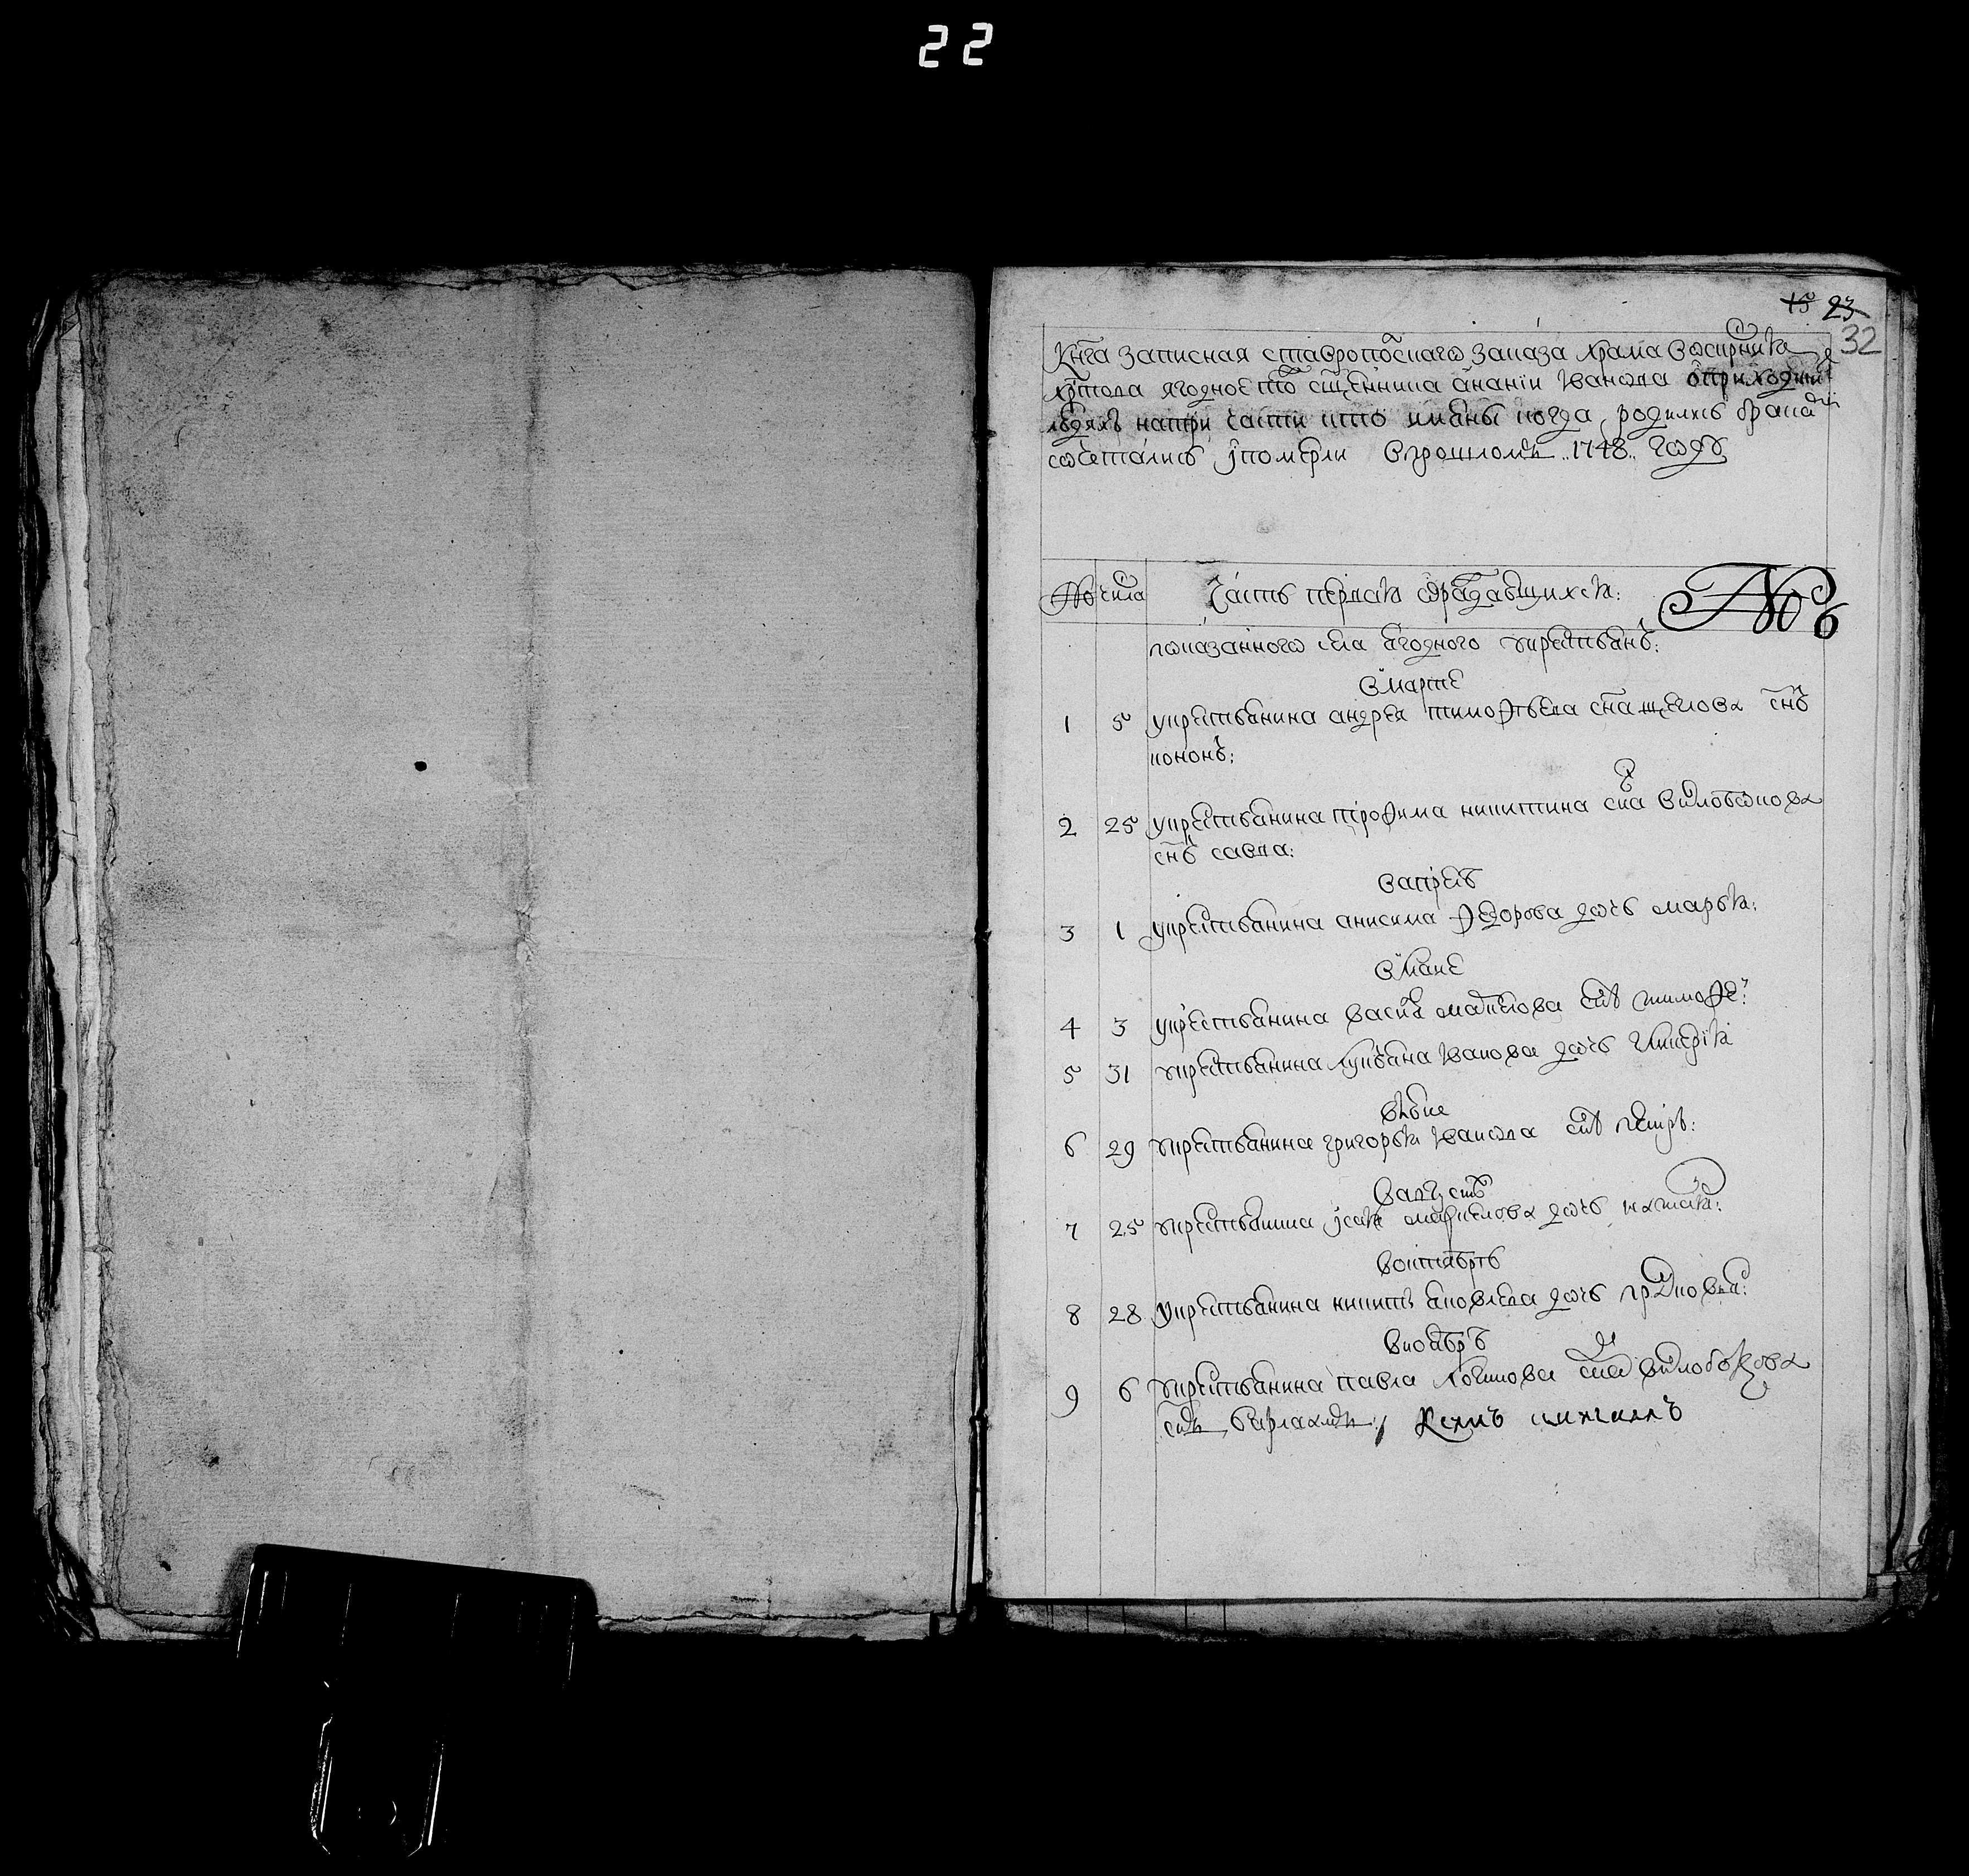 22
15 23
32
Кнга записная ставропоскаго заказа храма воскрния
хртова ягодное то сщенника анании иванова о приходких
людяхъ на три части кто имяны когда родилис браком
сочеталис и померли в прошломъ 1748 году
№ числа Часть первая о раждавшихся:
№ 6
показанного села ягодного у крестьянъ:
в марте
1 5 у крестьянина андрея тимофеева сна щеглова снъ
кононъ:
2 25 у крестьянина трофима никитина сна
снъ савва:
в апреле
3 1 у крестьянина анисима федорова дочь марья:
в мае
4 3 у крестьянина васил снъ тимофей:
5 31 у крестьянина лукьяна иванова дочь гликерия
в июне
6 29 у крестьянина григорья иванова снъ петръ:
в августе
7 25 у крестьянина дочь настася:
в октябре
8 28 у крестьянина никиты яковлева дочь прасковья:
в ноябре
9 6 у крестьянина павла логинова сна
снъ варламъ